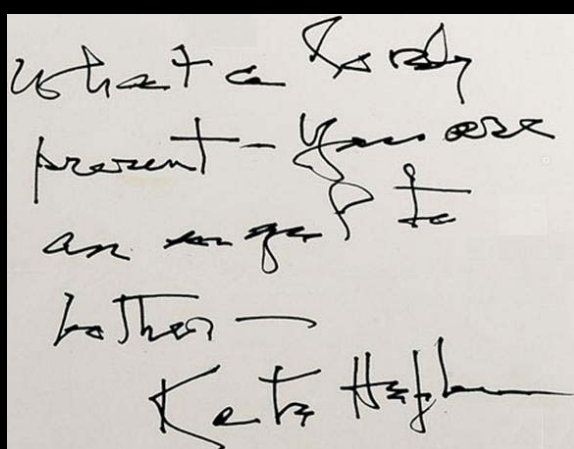 What a lovely
present - You are
an angel to
bother -
Kate Hepburn